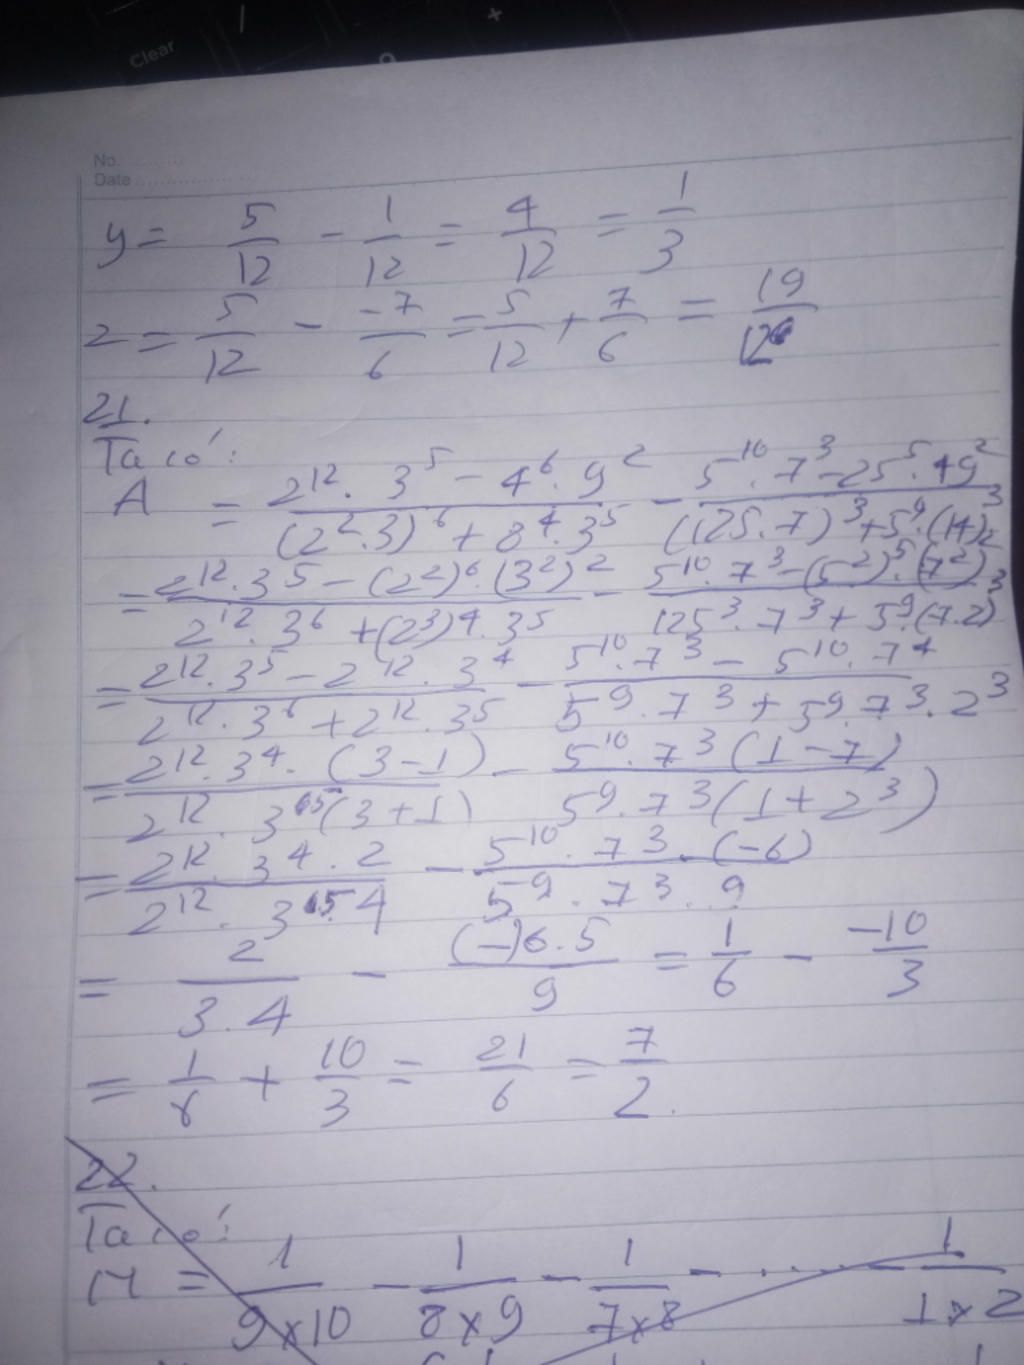 Clear
+
No. ..........
Date ....................
y = 5/12 - 1/12 = 4/12 = 1/3
z = 5/12 - -7/6 = 5/12 + 7/6 = 19/12
21.
Ta có:
A = (2^12 . 3^5 - 4^6 . 9^2)/((2^2 . 3)^6 + 8^4 . 3^5) - (5^10 . 7^3 - 25^5 . 49^2)/((125 . 7)^3 + 5^9 . (14)^3)
= (2^12 . 3^5 - (2^2)^6 . (3^2)^2)/(2^12 . 3^6 + (2^3)^4 . 3^5) - (5^10 . 7^3 - (5^2)^5 . (7^2)^2)/(125^3 . 7^3 + 5^9 . (7.2)^3)
= (2^12 . 3^5 - 2^12 . 3^4)/(2^12 . 3^6 + 2^12 . 3^5) - (5^10 . 7^3 - 5^10 . 7^4)/(5^9 . 7^3 + 5^9 . 7^3 . 2^3)
= (2^12 . 3^4 . (3 - 1))/(2^12 . 3^5 (3 + 1)) - (5^10 . 7^3 (1 - 7))/(5^9 . 7^3 (1 + 2^3))
= (2^12 . 3^4 . 2)/(2^12 . 3^5 . 4) - (5^10 . 7^3 . (-6))/(5^9 . 7^3 . 9)
= 2/(3 . 4) - ((-)6 . 5)/9 = 1/6 - -10/3
= 1/6 + 10/3 = 21/6 = 7/2.
22.
Ta có:
M = 1/(9x10) - 1/(8x9) - 1/(7x8) - ..... - 1/(1x2)